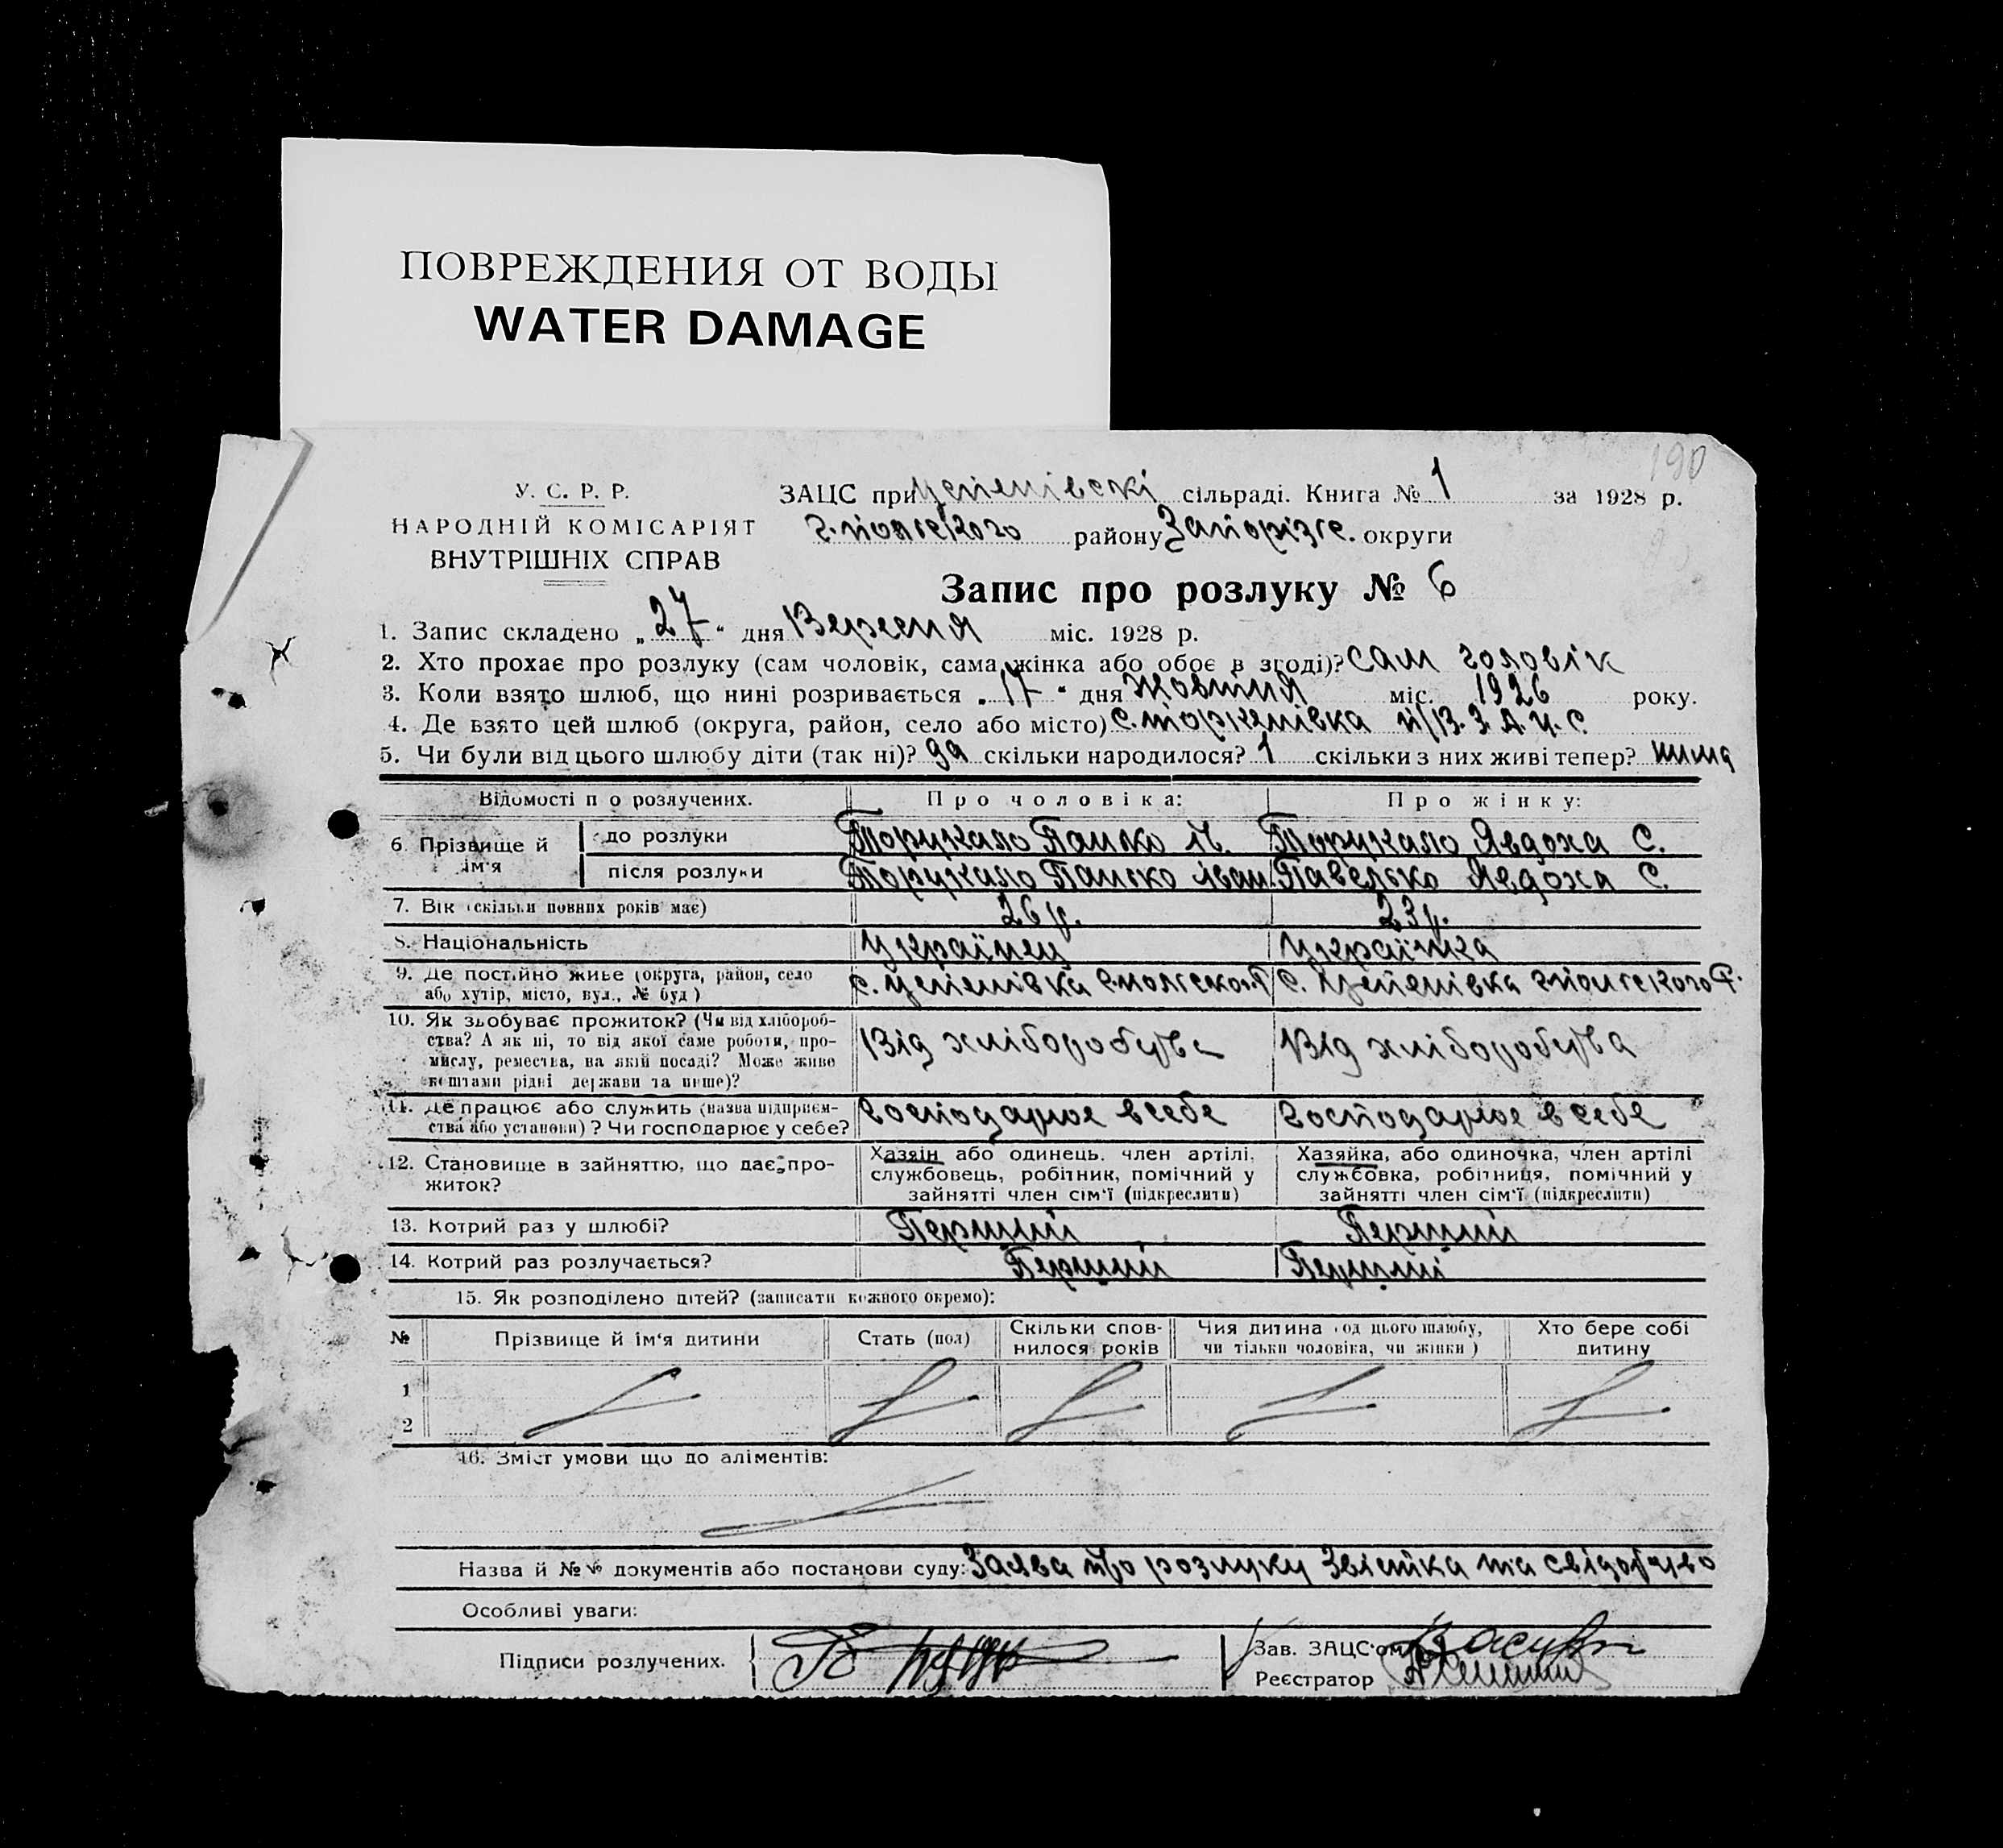 ПОВРЕЖДЕНИЯ ОТ ВОДЫ
WATER DAMAGE
190
У. С. Р. Р.
НАРОДНІЙ КОМІСАРІЯТ
ВНУТРІШНІХ СПРАВ
ЗАЦС при Успенівскі сільраді. Книга № 1 за 1928 р.
району Запорізьк. округи
Запис про розлуку № 6
1. Запис складено „27“ дня Вересня міс. 1928 р.
2. Хто прохає про розлуку (сам чоловік, сама жінка або обоє в згоді)? сам чоловік
3. Коли взято шлюб, що нині розривається „17“ дня Жовтня міс. 1926 року.
4. Де взято цей шлюб (округа, район, село або місто)
5. Чи були від цього шлюбу діти (так ні)? да скільки народилося? 1 скільки з них живі тепер? нима
Відомості п о розлучених. Про чоловіка: Про жінку:
6. Прізвище й ім'я
до розлуки Торукало Панько Ів. Торукало Явдоха С.
після розлуки Торукало Панько Іван. Павелько Явдоха С.
7. Вік (скільки повних років має) 26 р. 23 р.
8. Національність Українец Українка
9. Де постійно живе (округа, район, село або хутір, місто, вул., № буд) с. Успенівка с. Успенівка
10. Як здобуває прожиток? (Чи від хліборобства? А як ні, то від якої саме роботи, промислу, ремества, на якій посаді? Може живе коштами рідні держави та инше)? Від хліборобства Від хліборобства
11. Де працює або служить (назва підприємства або установи)? Чи господарює у себе? Господарює в себе Господарює в себе
12. Становище в зайняттю, що дає прожиток?
Хазяїн або одинець, член артілі, службовець, робітник, помічний у зайнятті член сім'ї (підкреслити)
Хазяйка, або одиночка, член артілі службовка, робітниця, помічний у зайнятті член сім'ї (підкреслити)
13. Котрий раз у шлюбі? Перший Перший
14. Котрий раз розлучається? Перший Перший
15. Як розподілено дітей? (записати кожного окремо):
№ Прізвище й ім'я дитини Стать (пол) Скільки сповнилося років Чия дитина (од цього шлюбу, чи тільки чоловіка, чи жінки) Хто бере собі дитину
1
2
16. Зміст умови що до аліментів:
Назва й №№ документів або постанови суду: Заява про розлуку Звістка та свідоцтво
Особливі уваги:
Підписи розлучених.
Зав. ЗАЦС'ом
Реєстратор